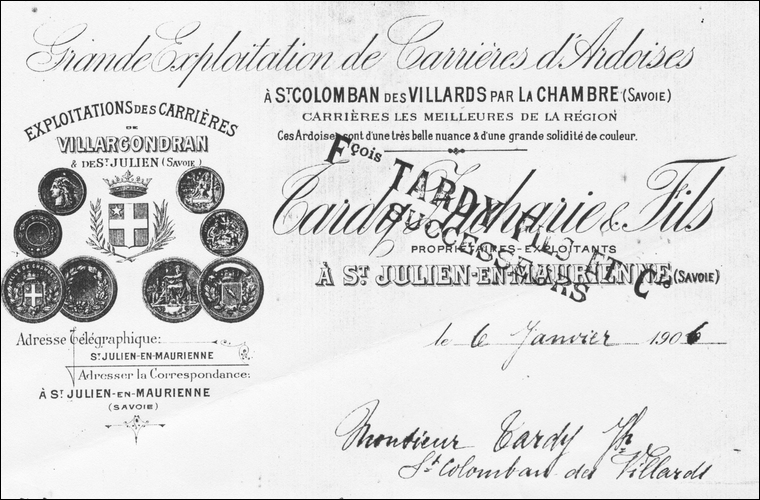 Grande Exploitation de Carrières d'Ardoises
À ST COLOMBAN DES VILLARDS PAR LA CHAMBRE (SAVOIE)
CARRIÈRES LES MEILLEURES DE LA RÉGION
Ces Ardoises sont d'une très belle nuance & d'une grande solidité de couleur.
EXPLOITATIONS DES CARRIÈRES
DE
VILLARGONDRAN
& DE ST JULIEN (SAVOIE)
Fçois TARDY FILS ET Cie
SUCCESSEURS
Tardy Zacharie & Fils
PROPRIÉTAIRES-EXPLOITANTS
À ST JULIEN-EN-MAURIENNE (SAVOIE)
Adresse télégraphique:
ST JULIEN-EN-MAURIENNE
Adresser la Correspondance:
À ST JULIEN-EN-MAURIENNE
(SAVOIE)
le 6 Janvier 1906
Monsieur Tardy
St Colomban des Villards